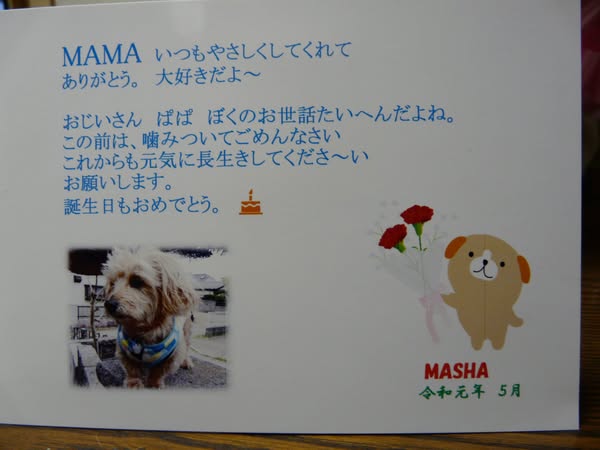 MAMA いつもやさしくしてくれて
ありがとう。 大好きだよ～
おじいさん ぱぱ ぼくのお世話たいへんだよね。
この前は、噛みついてごめんなさい
これからも元気に長生きしてくださ～い
お願いします。
誕生日もおめでとう。
MASHA
令和元年 5月